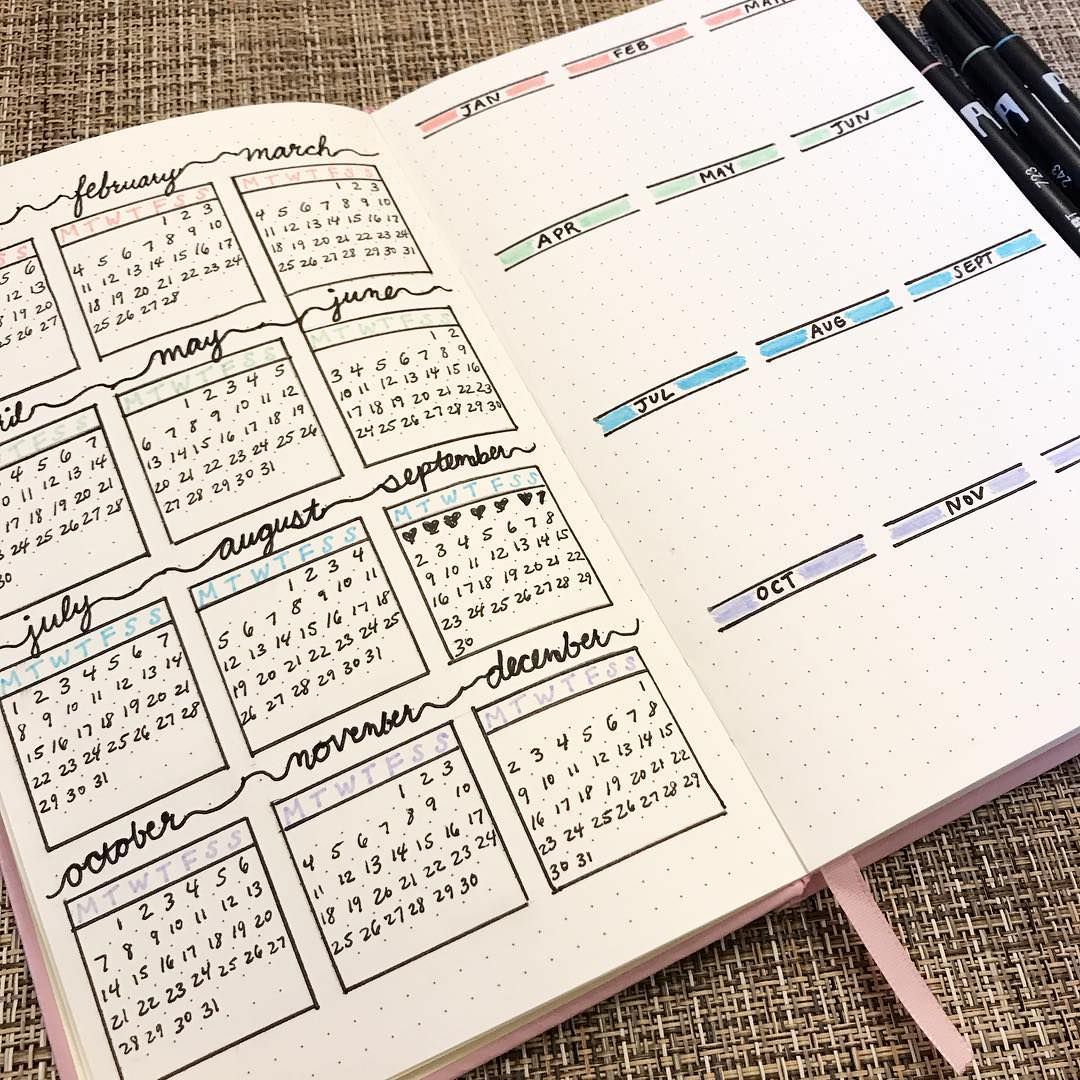 february
M T W T F S S
1 2 3
4 5 6 7 8 9 10
11 12 13 14 15 16 17
18 19 20 21 22 23 24
25 26 27 28
march
M T W T F S S
1 2 3
4 5 6 7 8 9 10
11 12 13 14 15 16 17
18 19 20 21 22 23 24
25 26 27 28 29 30 31
S S
5 6
12 13
19 20
25 26 27
ril
T F S S
4 5 6 7
10 11 12 13 14
17 18 19 20 21
24 25 26 27 28
30
may
M T W T F S S
1 2 3 4 5
6 7 8 9 10 11 12
13 14 15 16 17 18 19
20 21 22 23 24 25 26
27 28 29 30 31
june
M T W T F S S
1 2
3 4 5 6 7 8 9
10 11 12 13 14 15 16
17 18 19 20 21 22 23
24 25 26 27 28 29 30
july
M T W T F S S
1 2 3 4 5 6 7
8 9 10 11 12 13 14
15 16 17 18 19 20 21
22 23 24 25 26 27 28
29 30 31
august
M T W T F S S
1 2 3 4
5 6 7 8 9 10 11
12 13 14 15 16 17 18
19 20 21 22 23 24 25
26 27 28 29 30 31
september
M T W T F S S
2 3 4 5 6 7 8
9 10 11 12 13 14 15
16 17 18 19 20 21 22
23 24 25 26 27 28 29
30
october
M T W T F S S
1 2 3 4 5 6
7 8 9 10 11 12 13
14 15 16 17 18 19 20
21 22 23 24 25 26 27
28 29 30 31
november
M T W T F S S
1 2 3
4 5 6 7 8 9 10
11 12 13 14 15 16 17
18 19 20 21 22 23 24
25 26 27 28 29 30
december
M T W T F S S
1
2 3 4 5 6 7 8
9 10 11 12 13 14 15
16 17 18 19 20 21 22
23 24 25 26 27 28 29
30 31
JAN FEB MAR
APR MAY JUN
JUL AUG SEPT
OCT NOV
723
243